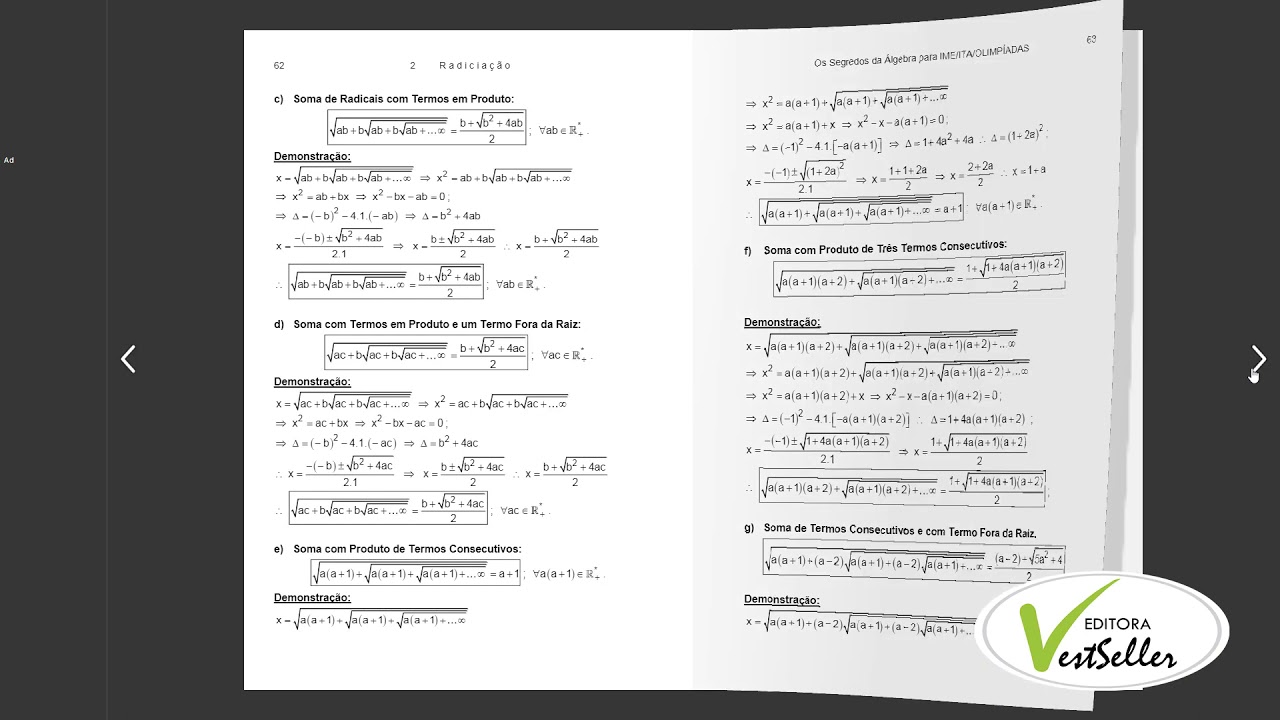 Ad
62 2 Radiciação
c) Soma de Radicais com Termos em Produto:
√(ab+b√(ab+b√(ab+...∞))) = (b+√(b²+4ab))/2 ; ∀ab∈ℝ₊* .
Demonstração:
x=√(ab+b√(ab+b√(ab+b√(ab+...∞)))) ⇒ x²=ab+b√(ab+b√(ab+b√(ab+...∞)))
⇒ x²=ab+bx ⇒ x²−bx−ab=0 ;
⇒ Δ=(−b)²−4.1.(−ab) ⇒ Δ=b²+4ab
x=(−(−b)±√(b²+4ab))/2.1 ⇒ x=(b±√(b²+4ab))/2 ∴ x=(b+√(b²+4ab))/2
∴ √(ab+b√(ab+b√(ab+...∞))) = (b+√(b²+4ab))/2 ; ∀ab∈ℝ₊* .
d) Soma com Termos em Produto e um Termo Fora da Raiz:
√(ac+b√(ac+b√(ac+...∞))) = (b+√(b²+4ac))/2 ; ∀ac∈ℝ₊* .
Demonstração:
x=√(ac+b√(ac+b√(ac+...∞))) ⇒ x²=ac+b√(ac+b√(ac+b√(ac+...∞)))
⇒ x²=ac+bx ⇒ x²−bx−ac=0 ;
⇒ Δ=(−b)²−4.1.(−ac) ⇒ Δ=b²+4ac
∴ x=(−(−b)±√(b²+4ac))/2.1 ⇒ x=(b±√(b²+4ac))/2 ∴ x=(b+√(b²+4ac))/2
∴ √(ac+b√(ac+b√(ac+...∞))) = (b+√(b²+4ac))/2 ; ∀ac∈ℝ₊* .
e) Soma com Produto de Termos Consecutivos:
√(a(a+1)+√(a(a+1)+√(a(a+1)+...∞))) = a+1 ; ∀a(a+1)∈ℝ₊* .
Demonstração:
x=√(a(a+1)+√(a(a+1)+√(a(a+1)+...∞)))
Os Segredos da Álgebra para IME/ITA/OLIMPÍADAS 63
⇒ x²=a(a+1)+√(a(a+1)+√(a(a+1)+...∞))
⇒ x²=a(a+1)+x ⇒ x²−x−a(a+1)=0 ;
⇒ Δ=(−1)²−4.1.[−a(a+1)] ⇒ Δ=1+4a²+4a ∴ Δ=(1+2a)² ;
x=(−(−1)±√((1+2a)²))/2.1 ⇒ x=(1+1+2a)/2 ⇒ x=(2+2a)/2 ∴ x=1+a
∴ √(a(a+1)+√(a(a+1)+√(a(a+1)+...∞))) = a+1 ; ∀a(a+1)∈ℝ₊* .
f) Soma com Produto de Três Termos Consecutivos:
√(a(a+1)(a+2)+√(a(a+1)(a+2)+...∞)) = (1+√(1+4a(a+1)(a+2)))/2
Demonstração:
x=√(a(a+1)(a+2)+√(a(a+1)(a+2)+√(a(a+1)(a+2)+...∞)))
⇒ x²=a(a+1)(a+2)+√(a(a+1)(a+2)+√(a(a+1)(a+2)+...∞))
⇒ x²=a(a+1)(a+2)+x ⇒ x²−x−a(a+1)(a+2)=0 ;
⇒ Δ=(−1)²−4.1.[−a(a+1)(a+2)] ∴ Δ=1+4a(a+1)(a+2) ;
x=(−(−1)±√(1+4a(a+1)(a+2)))/2.1 ⇒ x=(1+√(1+4a(a+1)(a+2)))/2
∴ √(a(a+1)(a+2)+√(a(a+1)(a+2)+...∞)) = (1+√(1+4a(a+1)(a+2)))/2 ;
g) Soma de Termos Consecutivos e com Termo Fora da Raiz.
√(a(a+1)+(a−2)√(a(a+1)+(a−2)√(a(a+1)+...∞))) = ((a−2)+√(5a²+4))/2
Demonstração:
x=√(a(a+1)+(a−2)√(a(a+1)+(a−2)√(a(a+1)+...
EDITORA
VestSeller